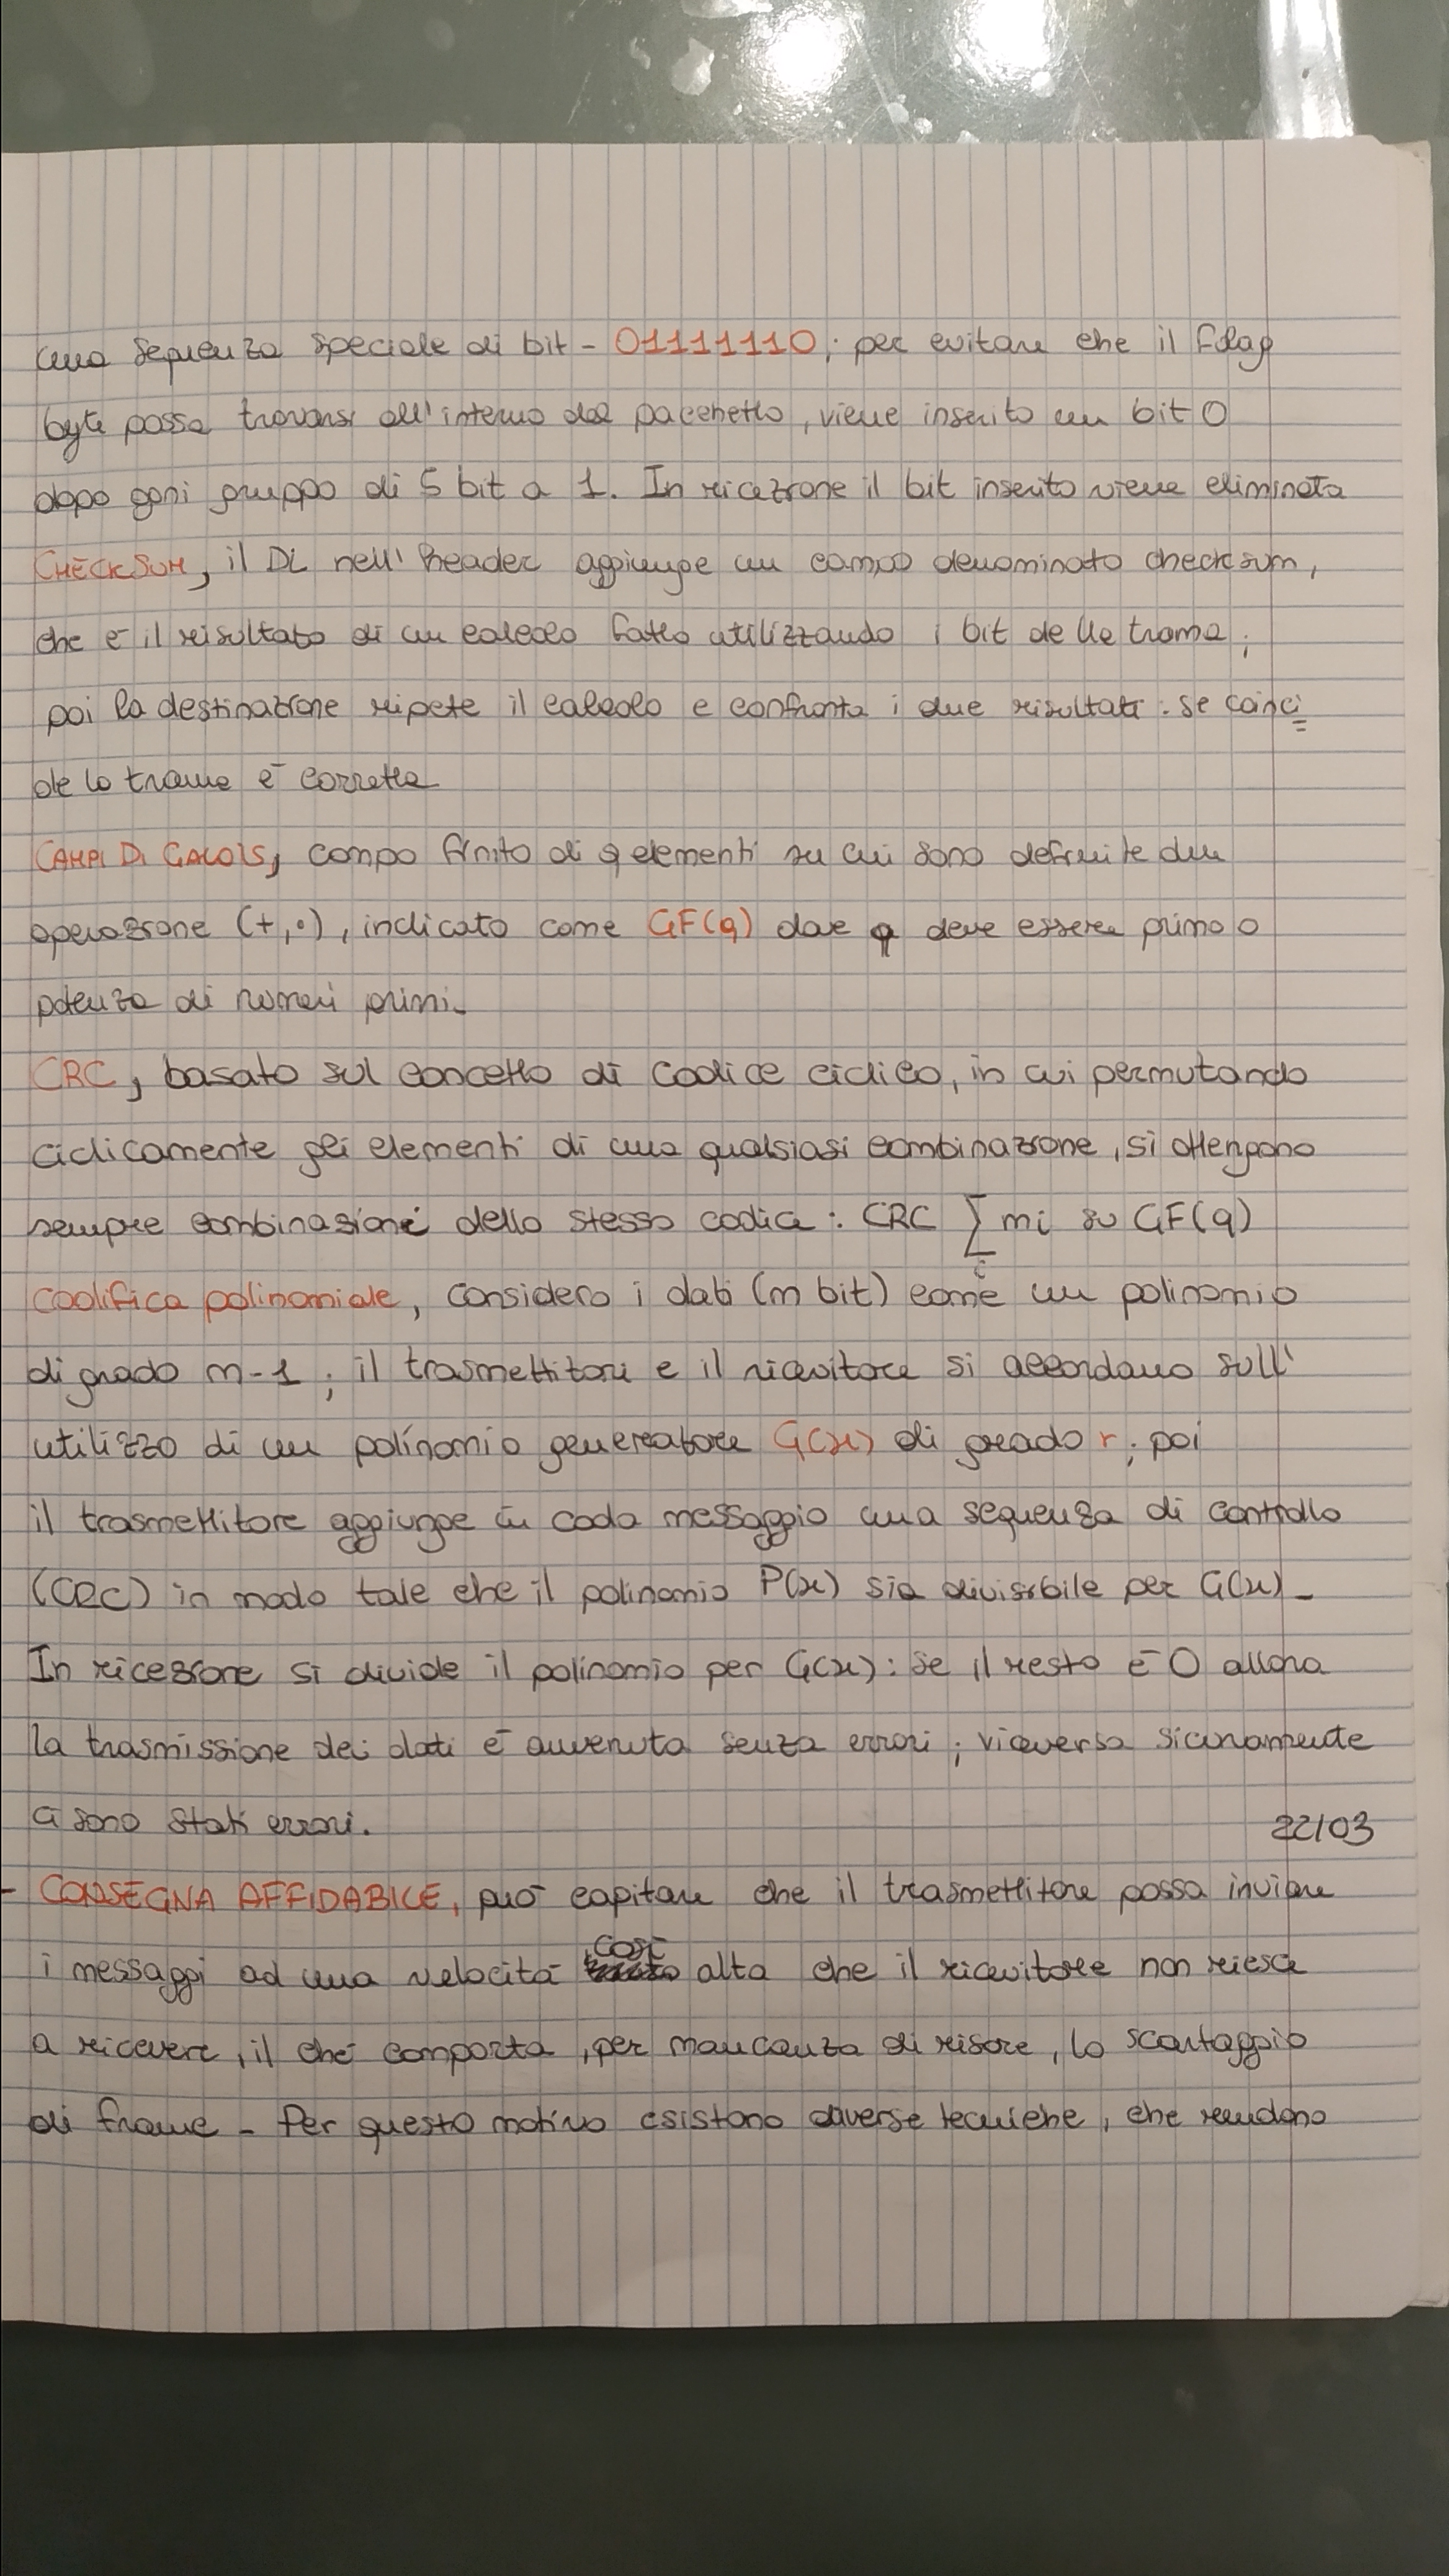 una sequenza speciale di bit - 01111110; per evitare che il flag
byte possa trovarsi all'interno del pacchetto, viene inserito un bit 0
dopo ogni gruppo di 5 bit a 1. In ricezione il bit inserito viene eliminato
CHECKSUM, il DL nell'header aggiunge un campo denominato checksum,
che è il risultato di un calcolo fatto utilizzando i bit della trama;
poi la destinazione ripete il calcolo e confronta i due risultati: se coinci
de la trama è corretta
CAMPI DI GALOIS, campo finito di q elementi su cui sono definite due
operazione (+,•), indicato come GF(q) dove q deve essere primo o
potenza di numeri primi.
CRC, basato sul concetto di codice ciclico, in cui permutando
ciclicamente gli elementi di una qualsiasi combinazione, si ottengono
sempre combinazioni dello stesso codice: CRC ∑ mi su GF(q)
i
Codifica polinomiale, considero i dati (m bit) come un polinomio
di grado m-1; il trasmettitore e il ricevitore si accordano sull'
utilizzo di un polinomio generatore G(x) di grado r; poi
il trasmettitore aggiunge in coda messaggio una sequenza di controllo
(CRC) in modo tale che il polinomio P(x) sia divisibile per G(x)-
In ricezione si divide il polinomio per G(x): se il resto è 0 allora
la trasmissione dei dati è avvenuta senza errori; viceversa sicuramente
ci sono stati errori.
22/03
- CONSEGNA AFFIDABILE, può capitare che il trasmettitore possa inviare
i messaggi ad una velocità così alta che il ricevitore non riesce
a ricevere, il che comporta, per mancanza di risore, lo scartaggio
di frame - Per questo motivo esistono diverse tecniche, che rendono